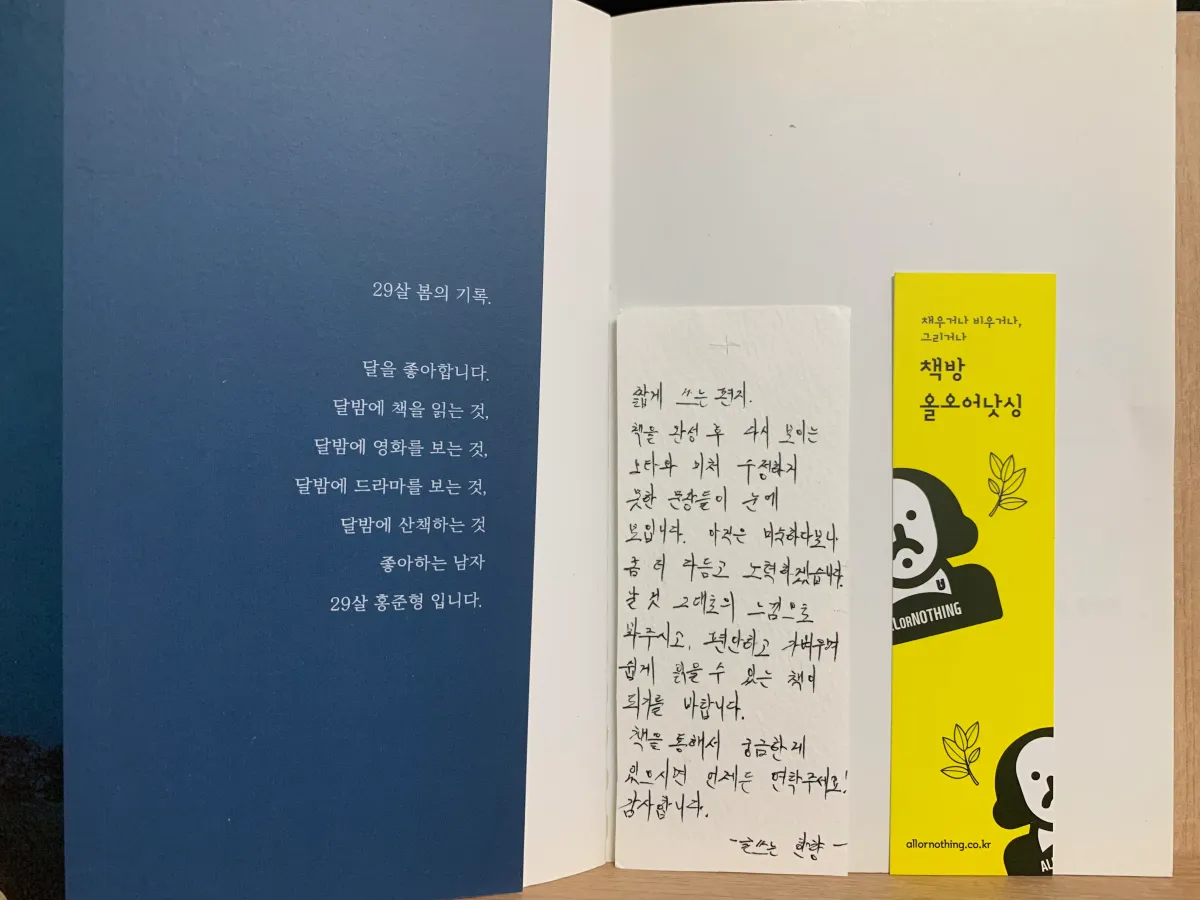 29살 봄의 기록.
달을 좋아합니다.
달밤에 책을 읽는 것,
달밤에 영화를 보는 것,
달밤에 드라마를 보는 것,
달밤에 산책하는 것
좋아하는 남자
29살 홍준형 입니다.
짧게 쓰는 편지.
책을 완성 후 다시 보이는
오타와 미처 수정하지
못한 문장들이 눈에
보입니다. 아직은 미숙하다보니
좀 더 다듬고 노력하겠습니다.
날 것 그대로의 느낌으로
봐주시고, 편안하고 가벼우며
쉽게 읽을 수 있는 책이
되기를 바랍니다.
책을 통해서 궁금한게
있으시면 언제든 연락주세요!
감사합니다.
-글쓰는
채우거나 비우거나,
그리거나
책방
올오어낫싱
LLorNOTHING
allornothing.co.kr
AL